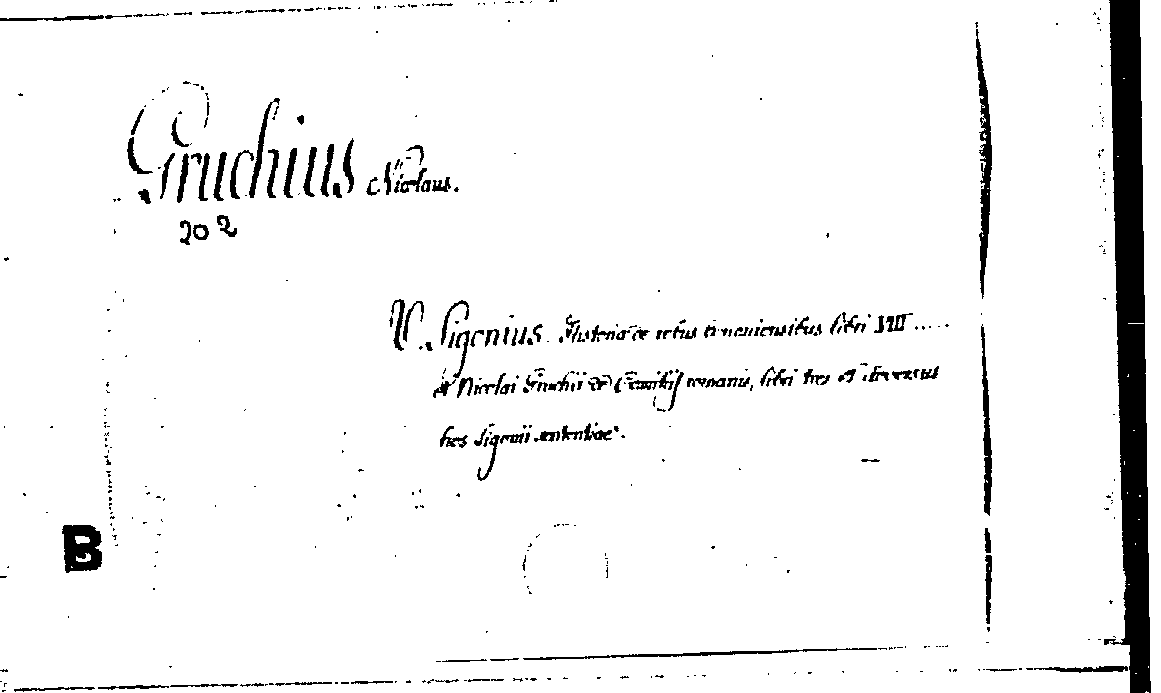 Gruchius Nicolaus.
202
V. Sigonius. Historia de rebus bononiensibus libri VIII.....
et Nicolai Gruchii de Comitijs romanis, libri tres et
tres Sigonii sententiae.
B